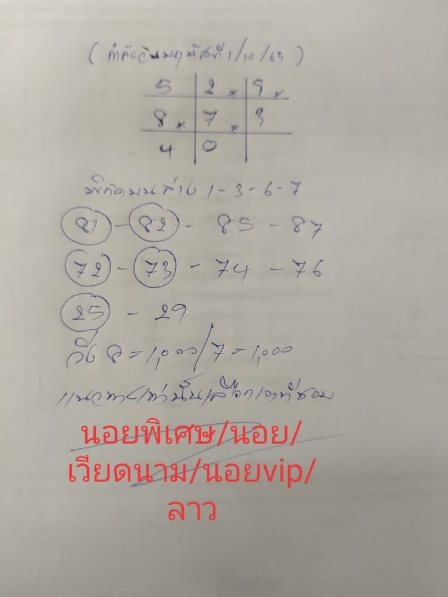 (กำลังวันพฤหัสที่ 1/10/63)
5 2 * 9 *
8 * 7 * 3
4 0
พิกัดบนล่าง 1-3-6-7
81 - 82 - 85 - 87
72 - 73 - 74 - 76
25 - 29
วิ่ง 8=1,000/7=1,000
แนวทางเท่านั้นเลือกเอาที่ชอบ
นอยพิเศษ/นอย/
เวียดนาม/นอยvip/
ลาว